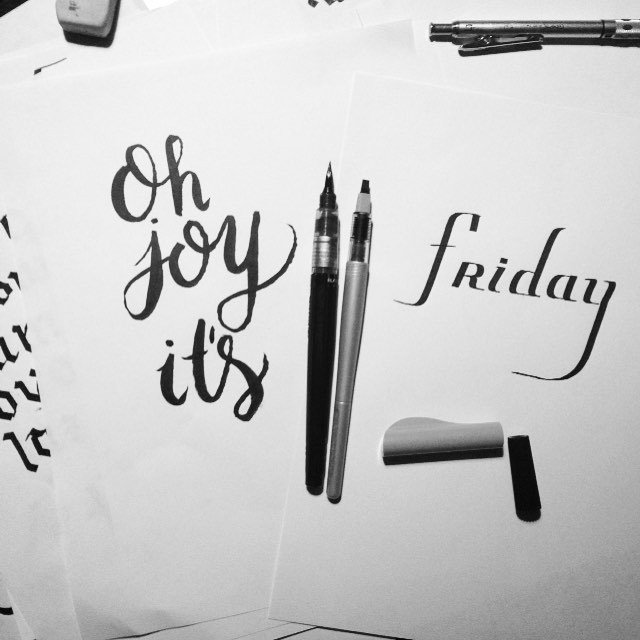 oh
joy
it's
friday